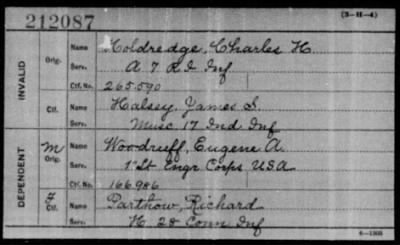 212087
(3-H-4)
INVALID
Orig. Name Holdredge, Charles H.
Serv. A 7 R I Inf
Ctf. No. 265.590
Ctf. Name Halsey, James S.
Serv. Musc 17 Ind Inf
DEPENDENT
M Orig. Name Woodruff, Eugene A.
Serv. 1" Lt Engr Corps USA
Ctf. No. 166986
F Ctf. Name Parthow, Richard
Serv. H. 28 Conn Inf
6-1308